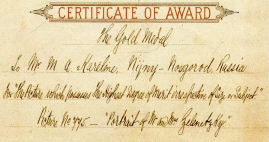 CERTIFICATE OF AWARD
The Gold Medal
To Mr M. A. Kareline, Nijny-Novgorod, Russia
for "The Picture which possesses the Highest degree of Merit irrespective of Size or Subject."
Picture No 775 — "Portrait of M. and Mme